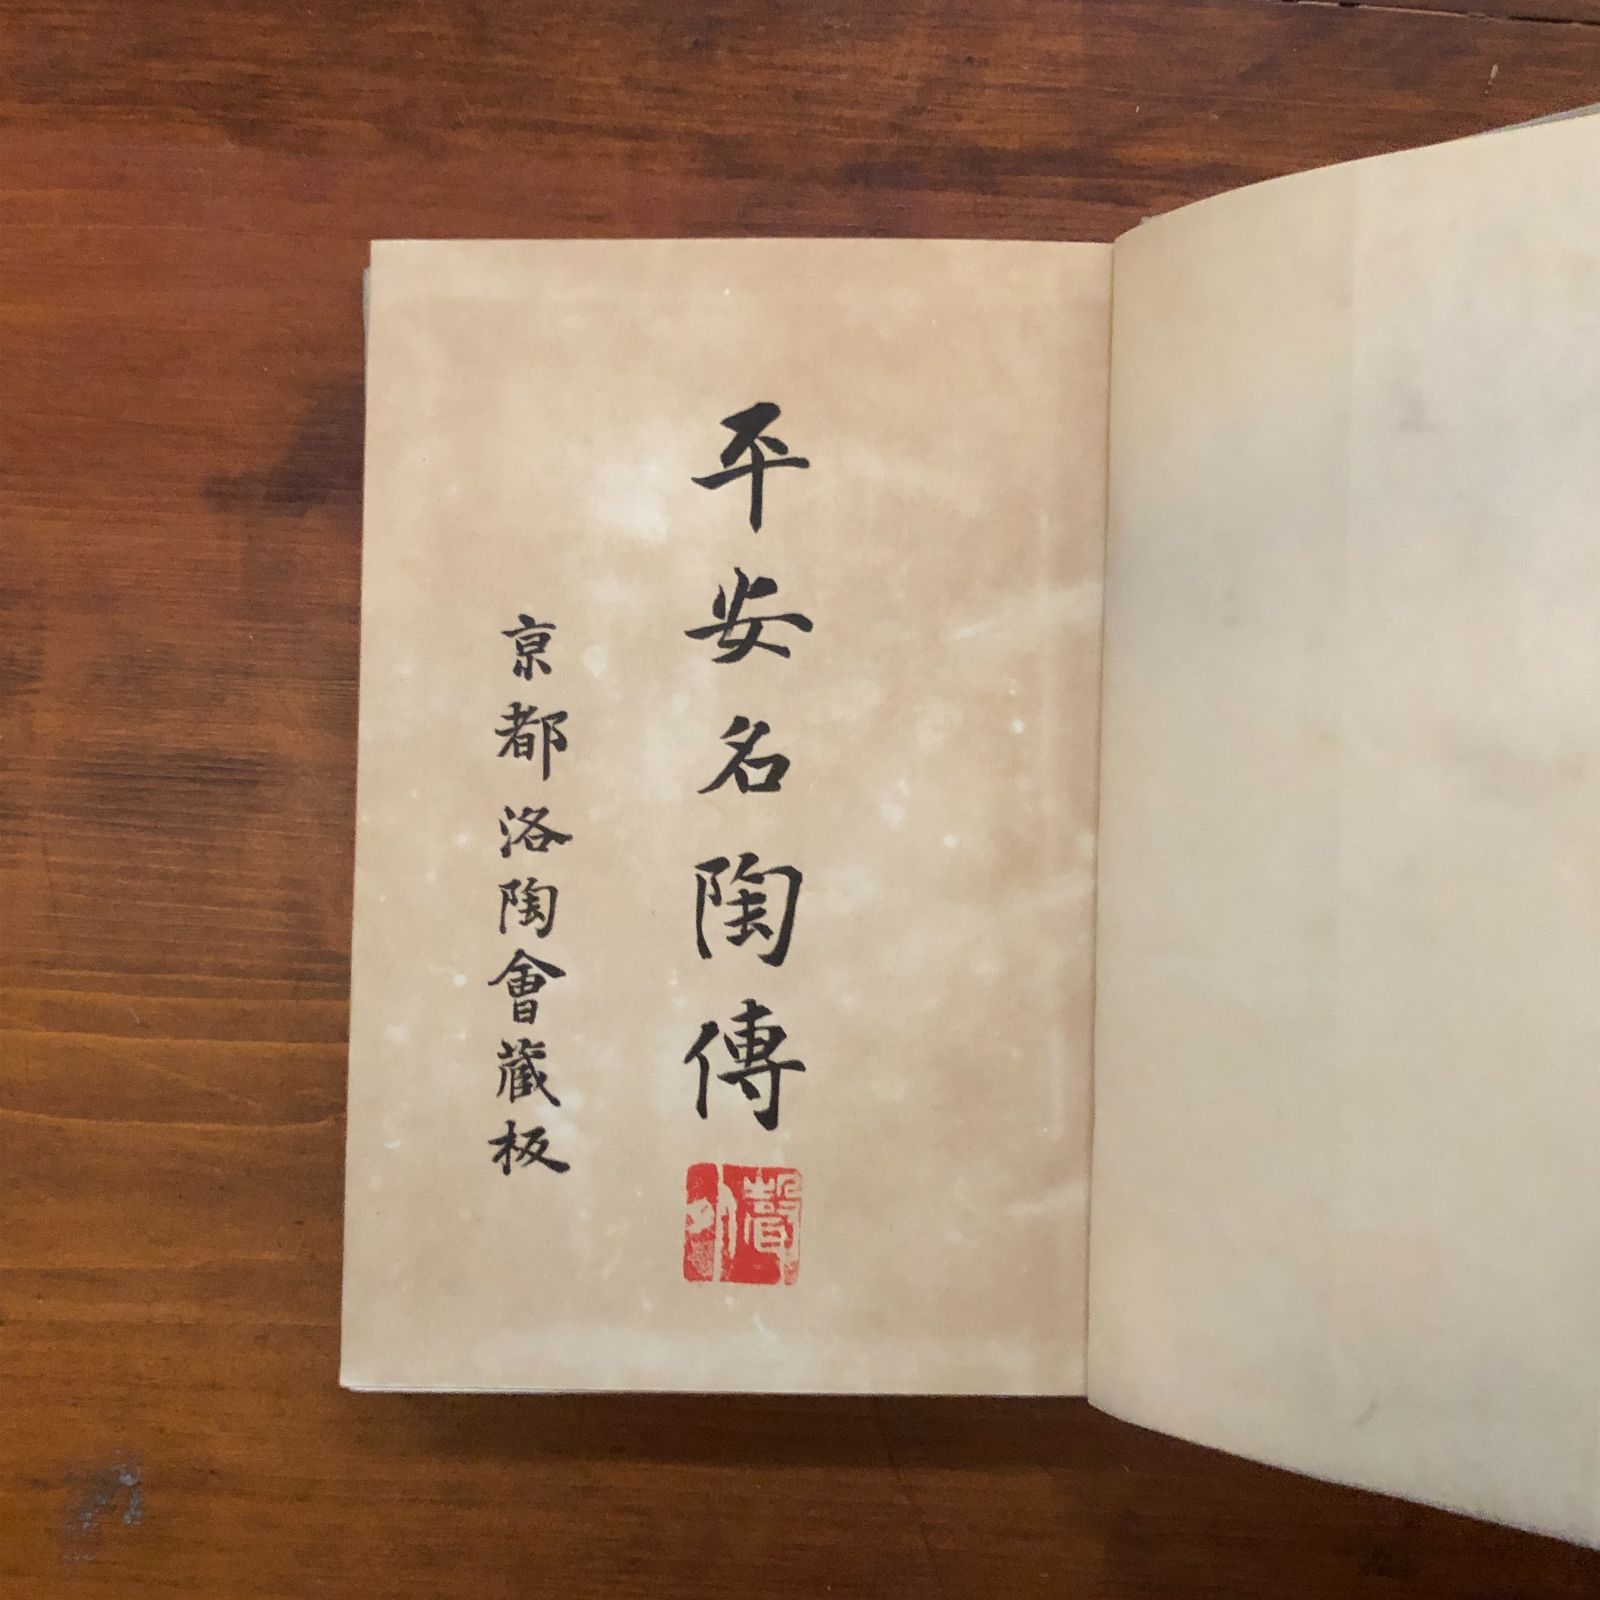 平安名陶傳
京都洛陶會藏板